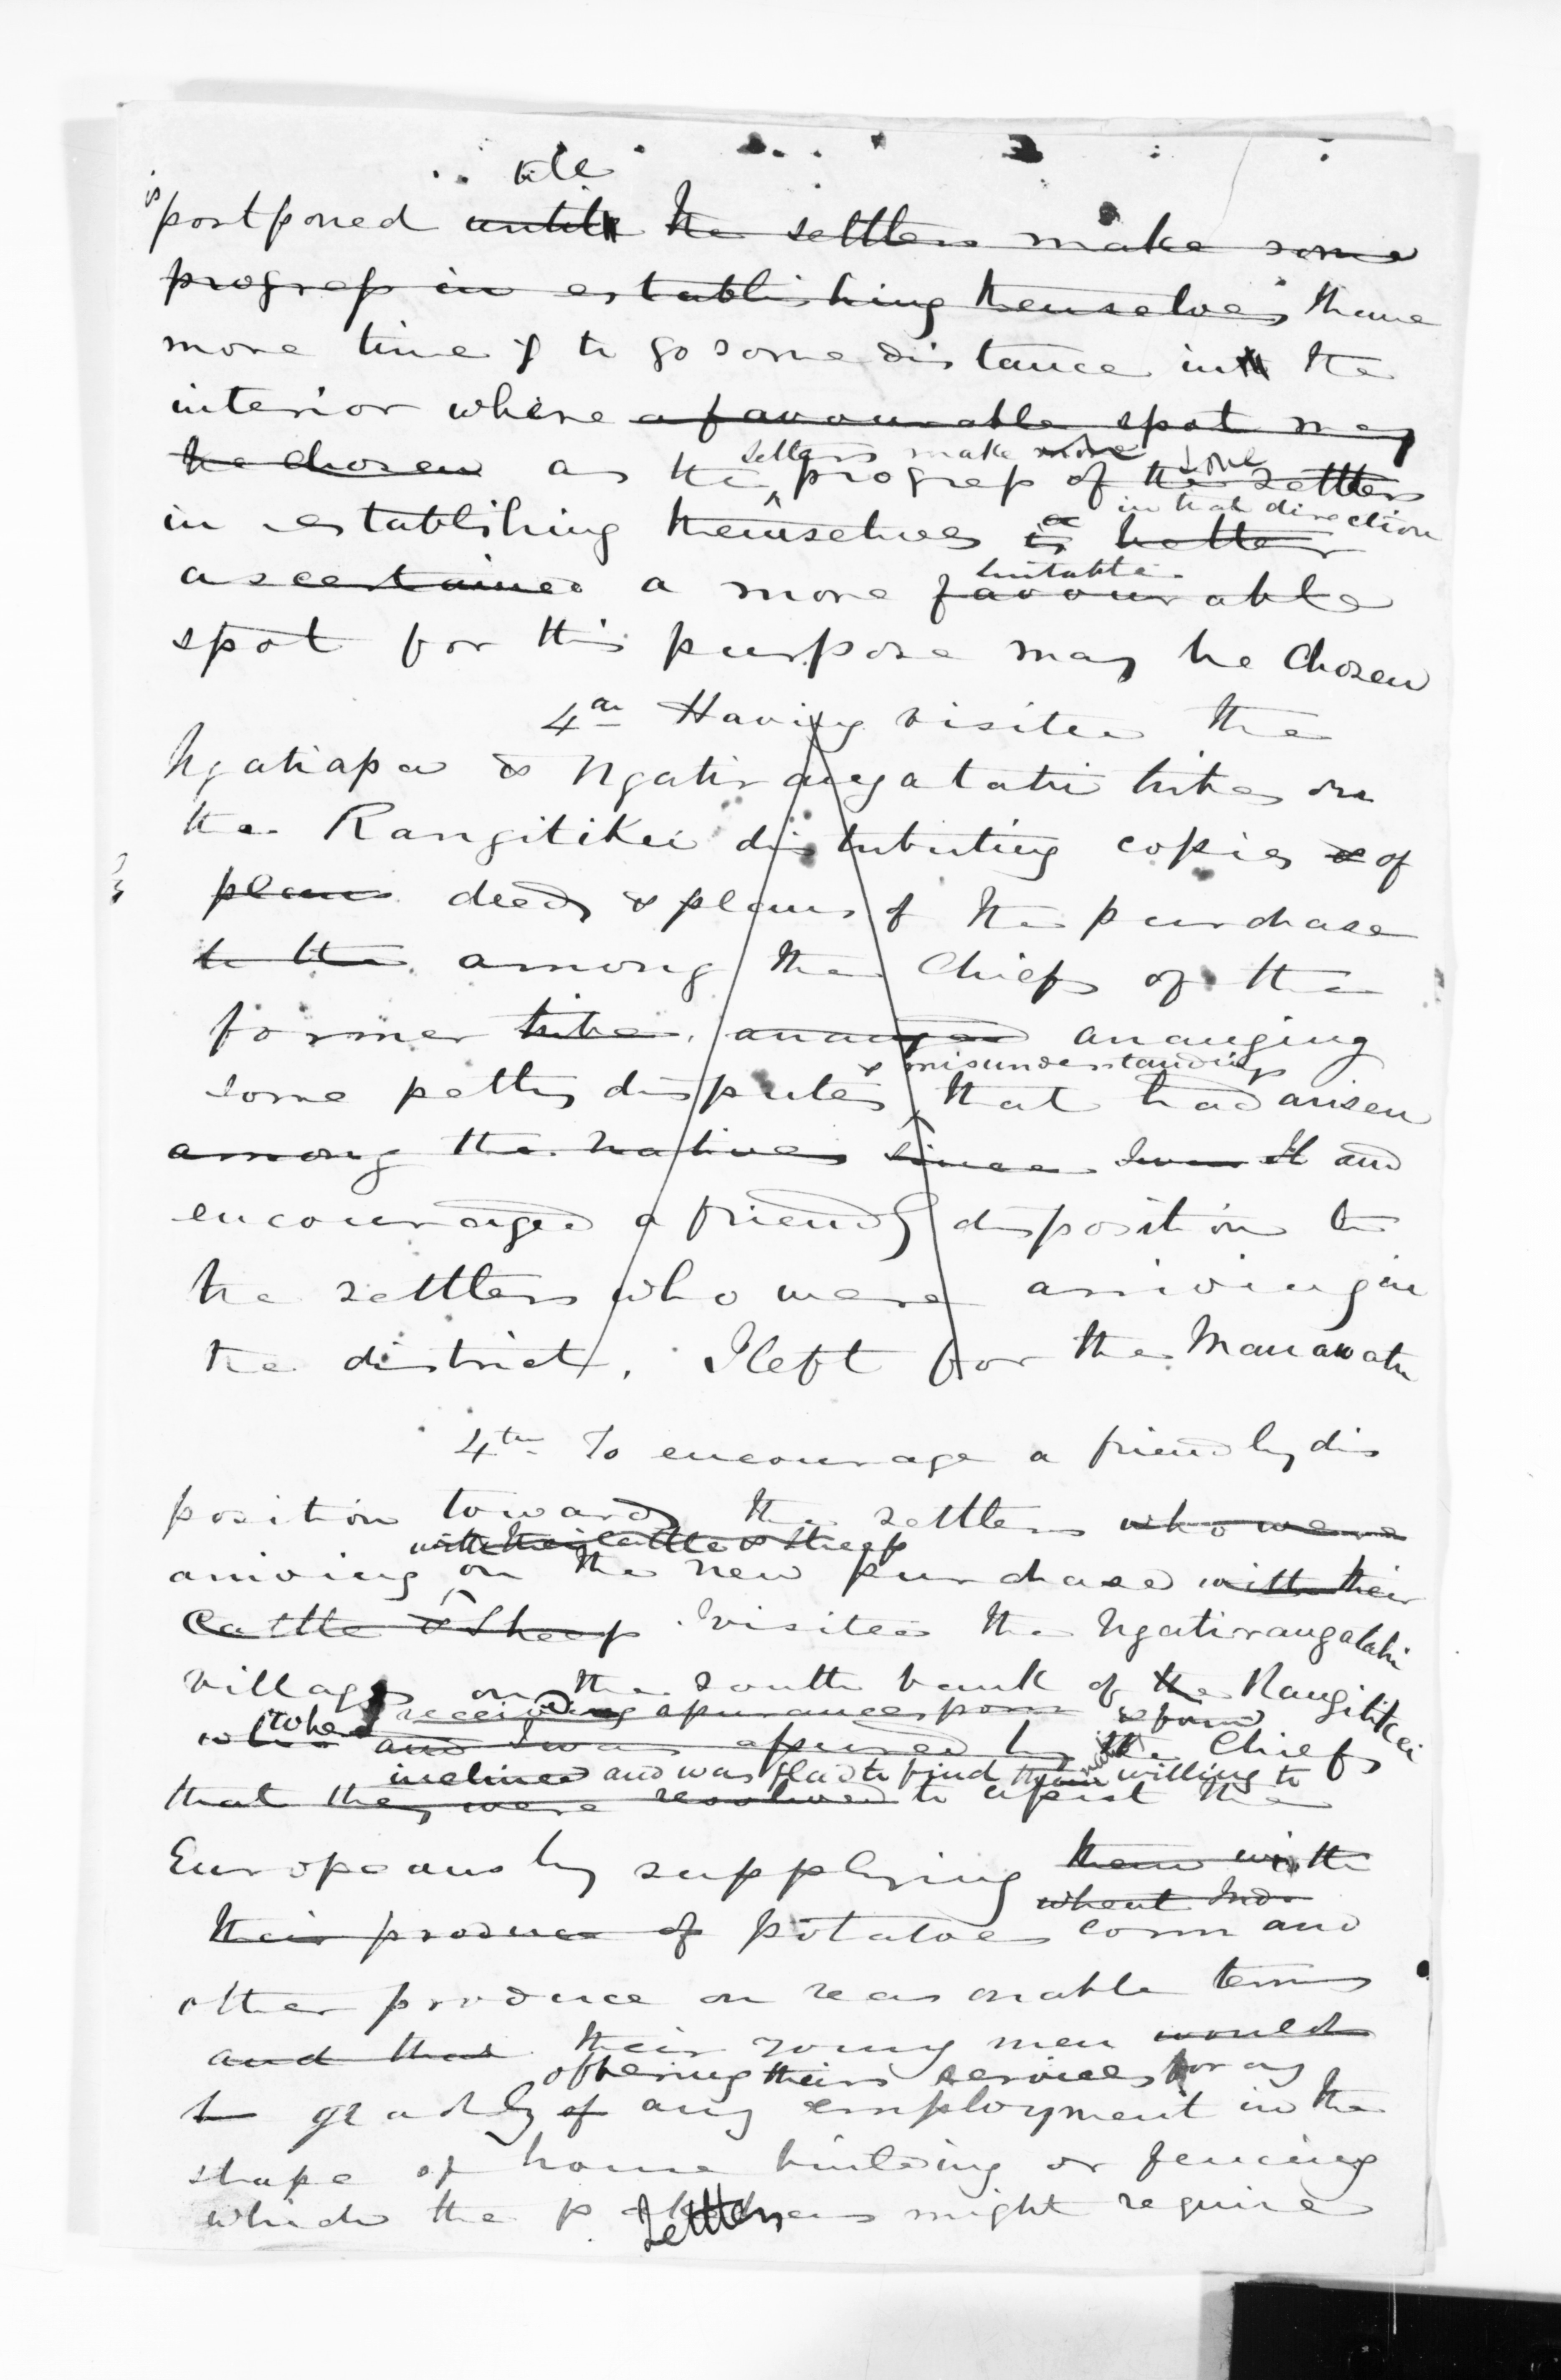 till
is postponed until the settlers make some
progress in establishing themselves I have
more time & to go some distance into the
interior where a favourable spot may
be chosen as the progress of the settlers
settlers make more some
in that direction
in establishing themselves is better
ascertained a more favourable
suitable
spot for this purpose may be chosen
4th Having visited the
Ngatiapa & Ngatirangatahi tribes on
the Rangitikei distributing copies & of
plans deeds & plans of the purchase
to the among the Chiefs of the
former tribe, arranged arranging
& misunderstandings
some petty disputes that had arisen
among the natives since and
encouraged a friendly disposition to
the settlers who were arriving in
the district, I left for the Manawatu
4th To encourage a friendly dis
position towards the settlers who were
with their cattle & sheep
arriving on the new purchase with their
Cattle & Sheep I visited the Ngatirangatahi
villages on the south bank of the Rangitikei
where receiving assurances from & found
who and I was assured by the Chiefs
inclined and was glad to find them willing to
that they were resolved to assist the
Europeans by supplying them with
wheat Ind.
their produce of potatoes corn and
other produce on reasonable terms
and that their young men would
offering their services for any
to gladly of any employment in the
shape of house building or fencing
which the settlers might require